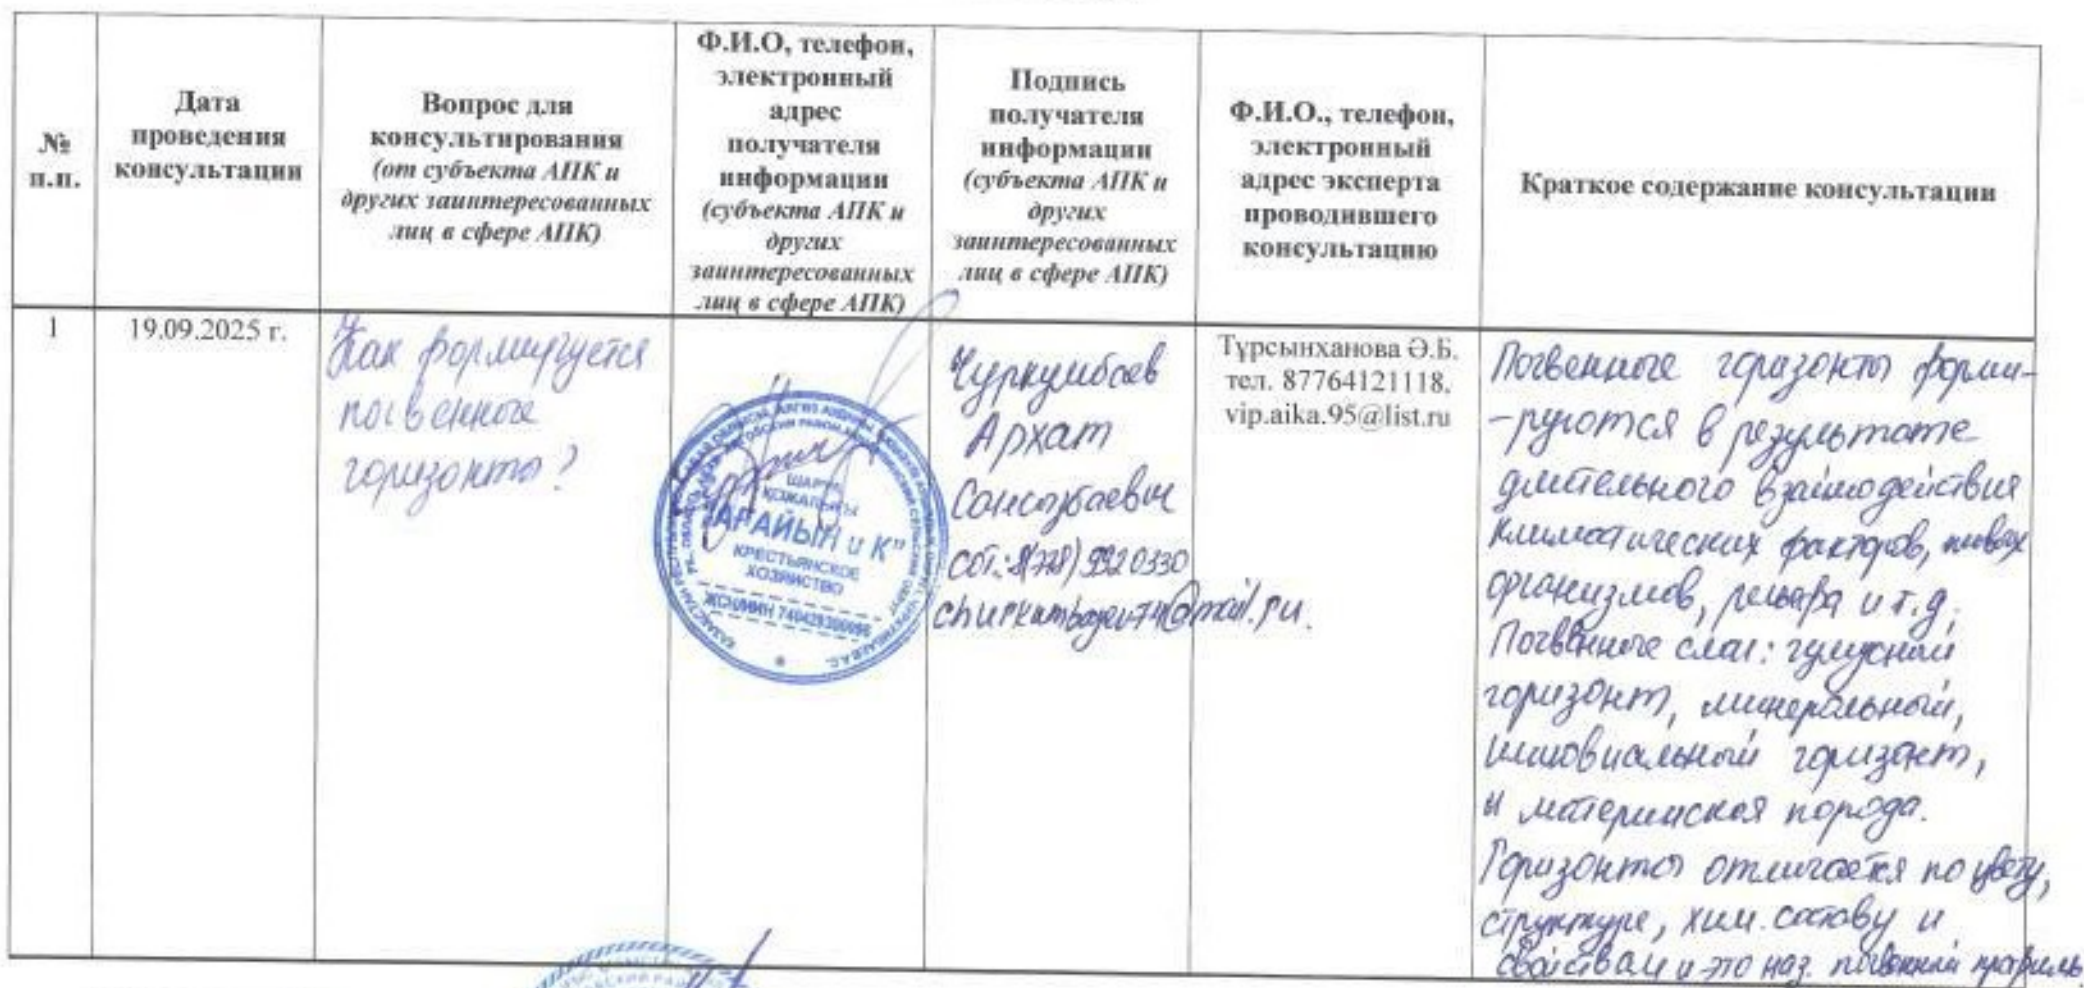 №
п.п.
Дата
проведения
консультации
Вопрос для
консультирования
(от субъекта АПК и
других заинтересованных
лиц в сфере АПК)
Ф.И.О, телефон,
электронный
адрес
получателя
информации
(субъекта АПК и
других
заинтересованных
лиц в сфере АПК)
Подпись
получателя
информации
(субъекта АПК и
других
заинтересованных
лиц в сфере АПК)
Ф.И.О., телефон,
электронный
адрес эксперта
проводившего
консультацию
Краткое содержание консультации
1
19.09.2025 г.
Как формируется
почвенные
горизонты?
ШАРУА
ҚОЖАЛЫҒЫ
"АРАЙЫН и К"
КРЕСТЬЯНСКОЕ
ХОЗЯЙСТВО
ЖСН/ИИН
Чуркумбаев
Архат
сот.:
@mail.ru.
Тұрсынханова Ә.Б.
тел. 87764121118,
vip.aika.95@list.ru
Почвенные горизонты форми-
-руются в результате
длительного взаимодействия
климатических факторов, живых
организмов, рельефа и т.д.
Почвенные слои: гумусный
горизонт, минеральный,
иллювиальный горизонт,
и материнская порода.
Горизонты отличается по цвету,
структуре, хим. составу и
свойствам и это наз. почвенный профиль.